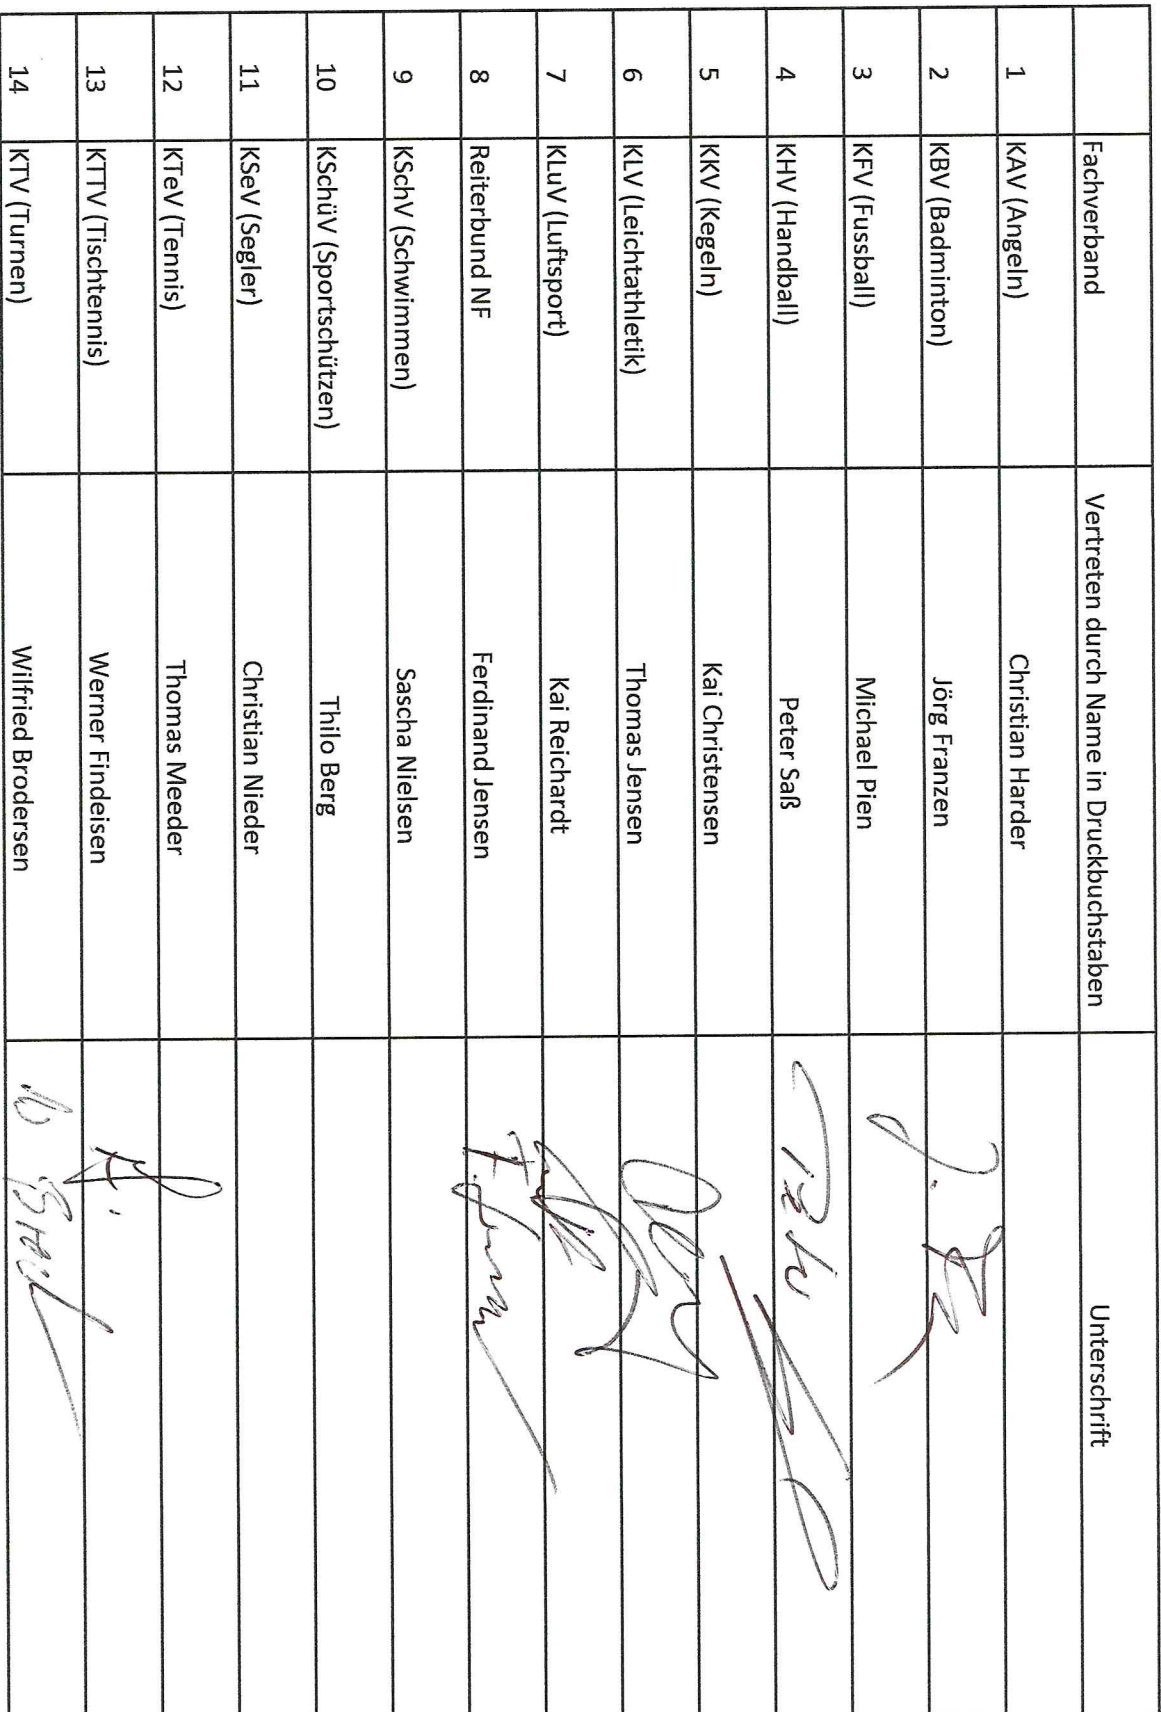 Fachverband Vertreten durch Name in Druckbuchstaben Unterschrift
1 KAV (Angeln) Christian Harder
2 KBV (Badminton) Jörg Franzen
3 KFV (Fussball) Michael Pien
4 KHV (Handball) Peter Saß
5 KKV (Kegeln) Kai Christensen
6 KLV (Leichtathletik) Thomas Jensen
7 KLuV (Luftsport) Kai Reichardt
8 Reiterbund NF Ferdinand Jensen
9 KSchV (Schwimmen) Sascha Nielsen
10 KSchüV (Sportschützen) Thilo Berg
11 KSeV (Segler) Christian Nieder
12 KTeV (Tennis) Thomas Meeder
13 KTTV (Tischtennis) Werner Findeisen
14 KTV (Turnen) Wilfried Brodersen